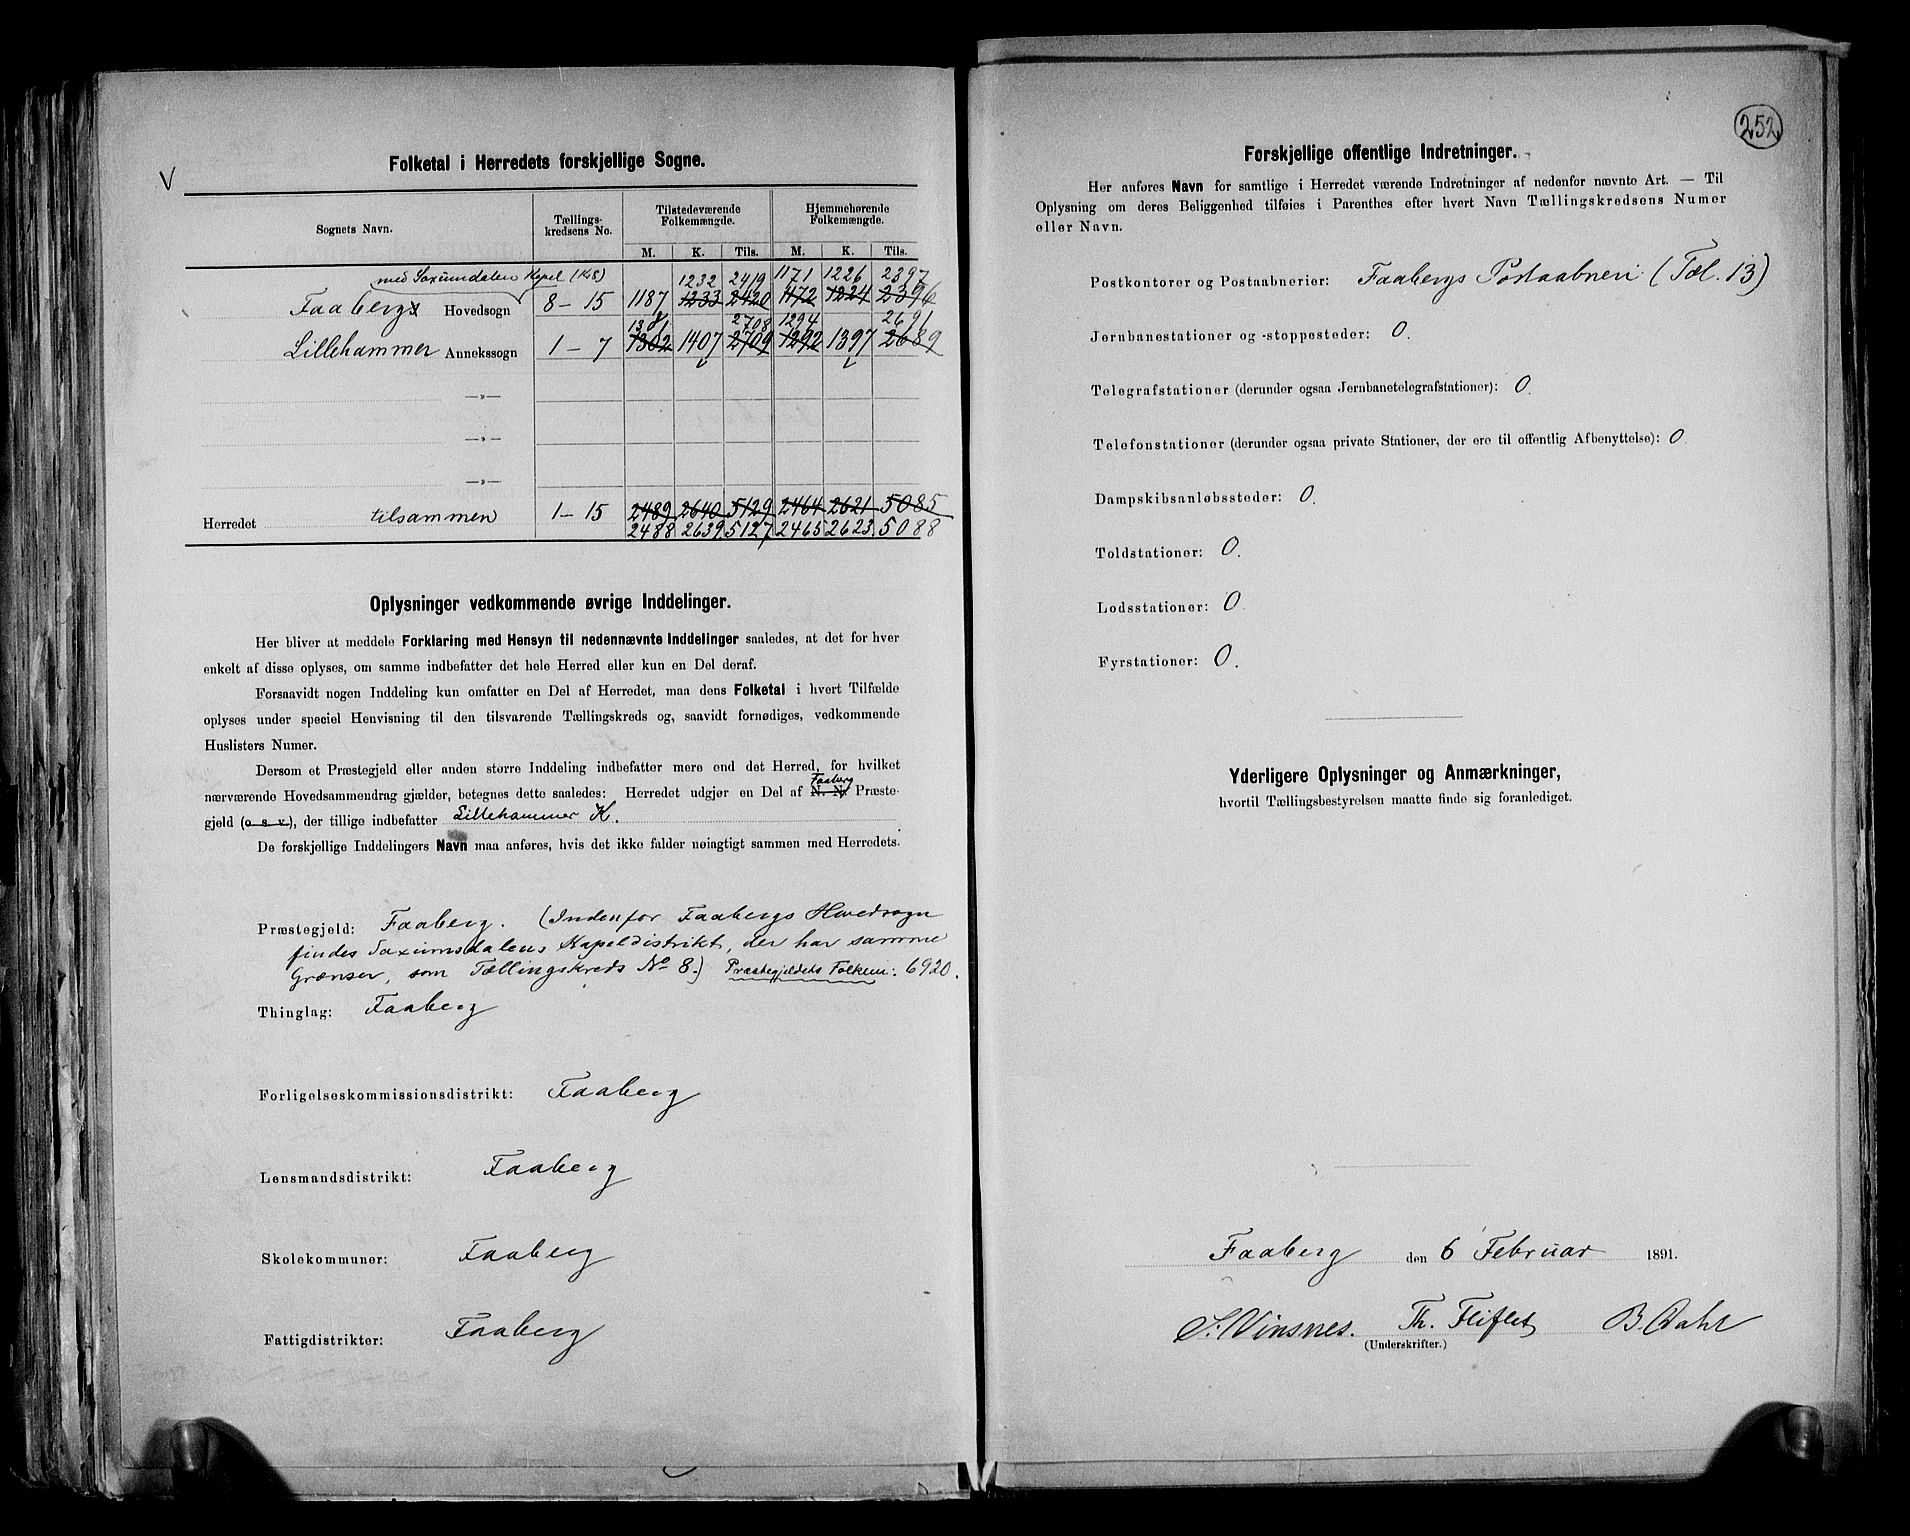 V
Folketal i Herredets forskjellige Sogne.
Sognets Navn.
Tællings-
kredsens No.
Tilstedeværende
Folkemængde.
Hjemmehørende
Folkemængde.
M. K. Tils. M. K. Tils.
med Saxumdalen Kapel (K8) 1232 2419 1171 1226 2397
Faaberg Hovedsogn 8-15 1187 1233 2420 1172 1224 2396
2708 1294 2691
Lillehammer Annekssogn 1-7 1302 1407 2709 1292 1397 2689
—„—
—„—
—„—
Herredet tilsammen 1-15 2489 2640 5129 2464 2621 5085
2488 2639. 5127 2465 2623. 5088
Oplysninger vedkommende øvrige Inddelinger.
Her bliver at meddele Forklaring med Hensyn til nedennævnte Inddelinger saaledes, at det for hver
enkelt af disse oplyses, om samme indbefatter det hele Herred eller kun en Del deraf.
Forsaavidt nogen Inddeling kun omfatter en Del af Herredet, maa dens Folketal i hvert Tilfælde
oplyses under speciel Henvisning til den tilsvarende Tællingskreds og, saavidt fornødiges, vedkommende
Huslisters Numer.
Dersom et Præstegjeld eller anden større Inddeling indbefatter mere end det Herred, for hvilket
Faaberg
nærværende Hovedsammendrag gjælder, betegnes dette saaledes: Herredet udgjør en Del af N. N. Præste-
gjeld (o s v), der tillige indbefatter Lillehammer K.
De forskjellige Inddelingers Navn maa anføres, hvis det ikke falder nøiagtigt sammen med Herredets.
Præstegjeld: Faaberg. (Indenfor Faabergs Hovedsogn
findes Saxumsdalens Kapeldistrikt, der har samme
Grænser, som Tællingskreds No 8.) Præstegjeldets Folkem: 6920.
Thinglag: Faaberg
Forligelseskommissionsdistrikt: Faaberg
Lensmandsdistrikt: Faaberg
Skolekommuner: Faaberg
Fattigdistrikter: Faaberg
252
Forskjellige offentlige Indretninger.
Her anføres Navn for samtlige i Herredet værende Indretninger af nedenfor nævnte Art. — Til
Oplysning om deres Beliggenhed tilføies i Parenthes efter hvert Navn Tællingskredsens Numer
eller Navn.
Postkontorer og Postaabnerier: Faabergs Postaabneri (Tæl. 13)
Jernbanestationer og -stoppesteder: 0.
Telegrafstationer (derunder ogsaa Jernbanetelegrafstationer): 0.
Telefonstationer (derunder ogsaa private Stationer, der ere til offentlig Afbenyttelse): 0.
Dampskibsanløbssteder: 0.
Toldstationer: 0.
Lodsstationer: 0.
Fyrstationer: 0.
Yderligere Oplysninger og Anmærkninger,
hvortil Tællingsbestyrelsen maatte finde sig foranlediget.
Faaberg den 6 Februar 1891.
S. Vinsnes. Th. Fliflet B.
(Underskrifter.)